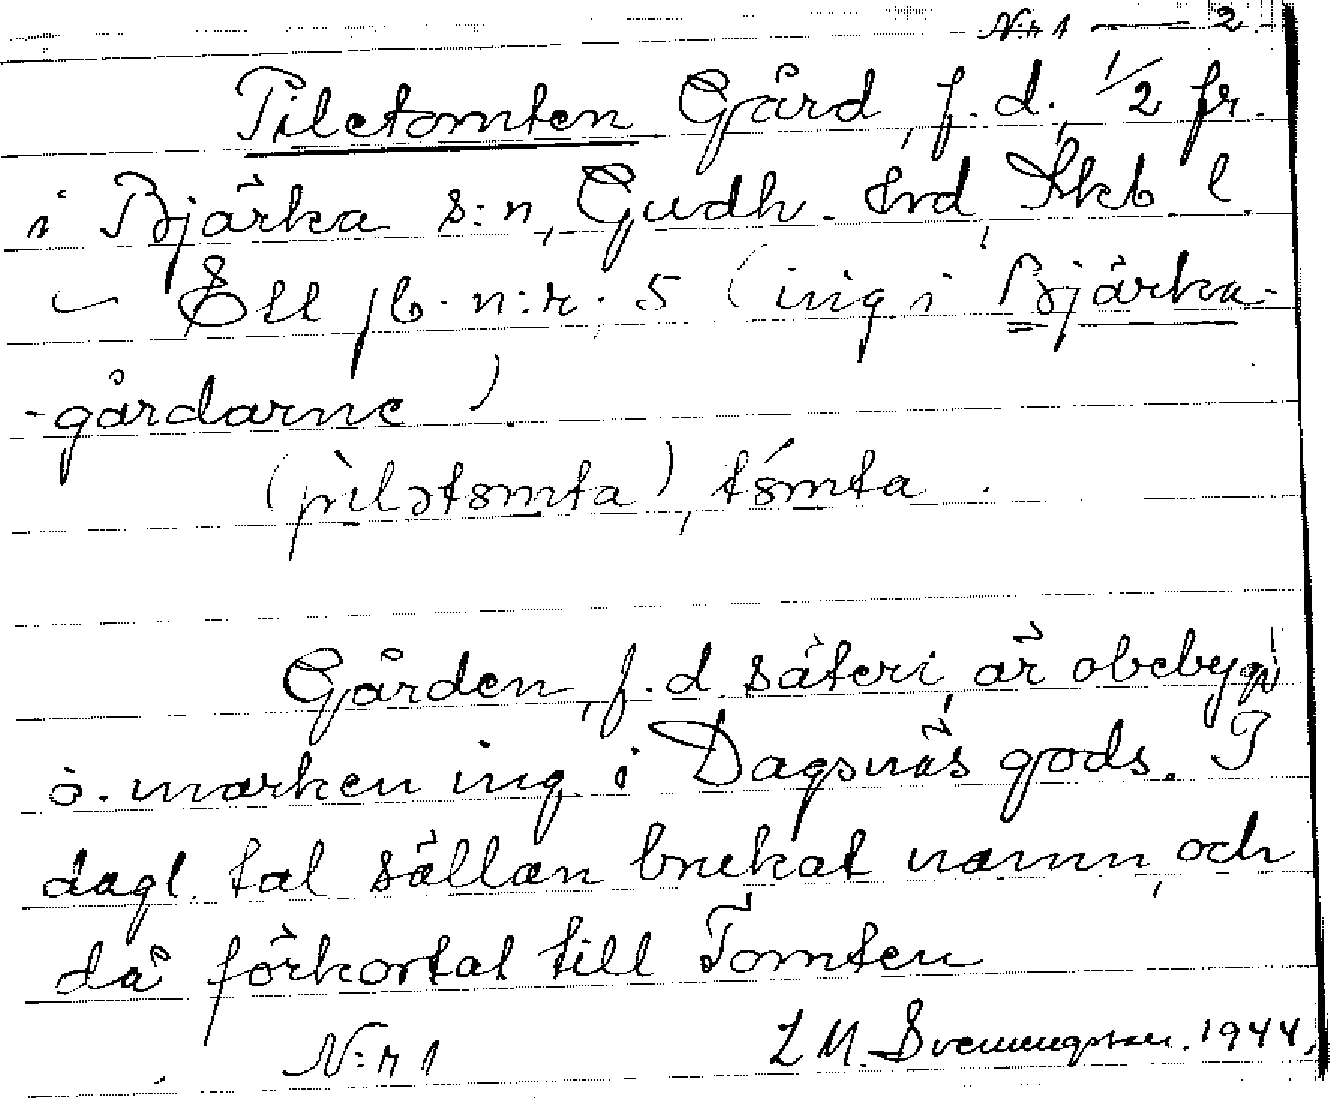 N:r 1 — 2.
Piletomten Gård, f. d., 1/2 fr.
i Bjärka s:n, Gudh. hrd, Skb l.
Ett jb. n:r. 5 (ing i Bjärka-
-gårdarne).
(pìlətomta), tómta.
Gården, f. d. säteri, är obebygd
o. marken ing i Dagsnäs gods. I
dagl. tal sällan brukat namn, och
då förkortat till Tomten
N:r 1 L M. Svenungsson. 1944.